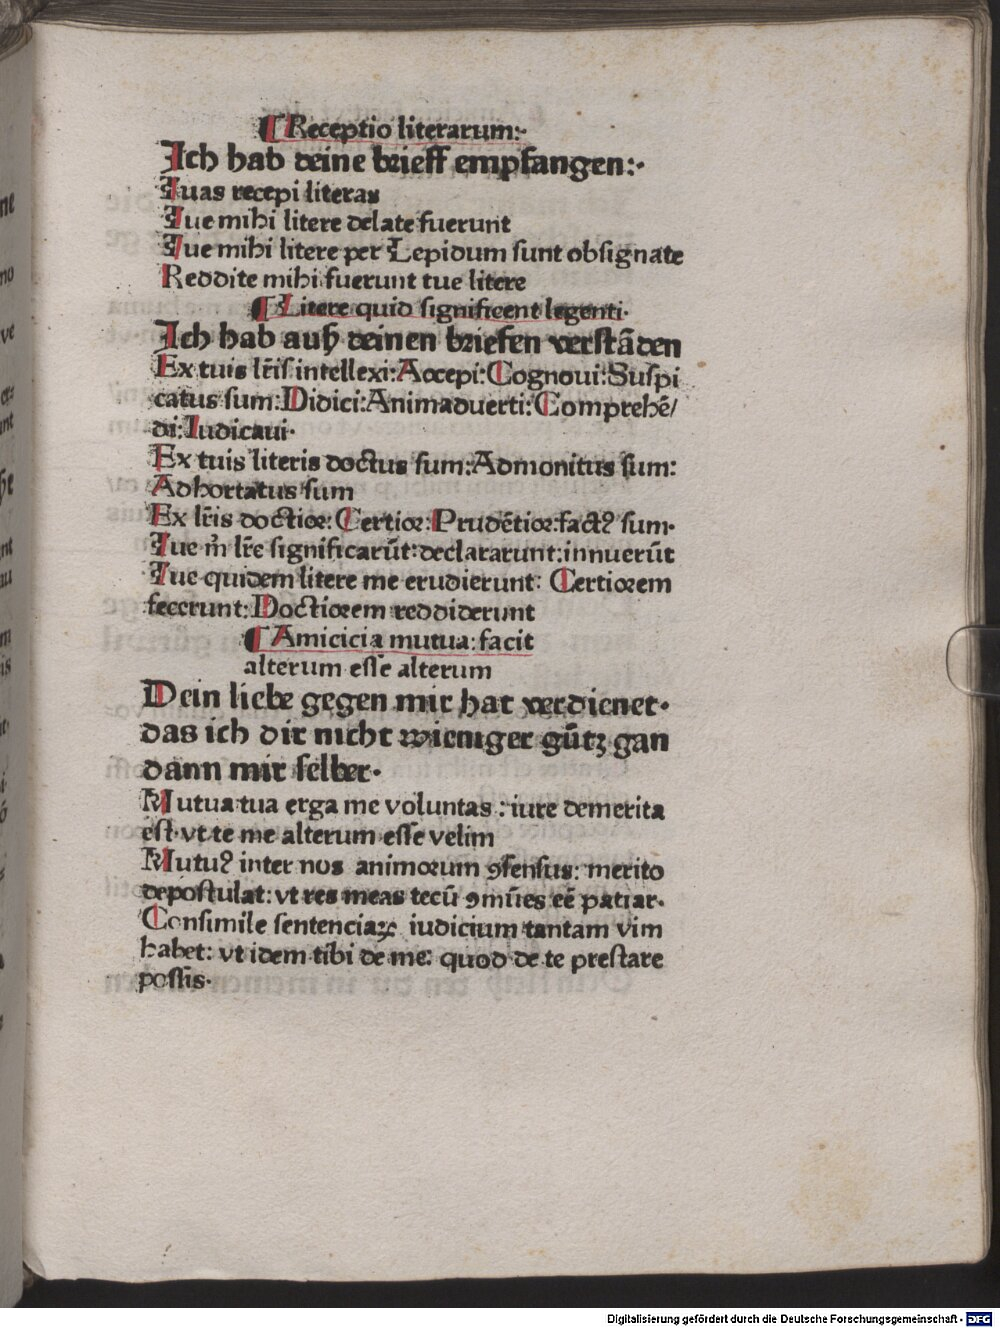 ¶ Receptio literarum:·
Ich hab deine brieff empfangen:·
Tuas recepi literas
Tue mihi litere delate fuerunt
Tue mihi litere per Lepidum sunt obsignate
Reddite mihi fuerunt tue litere
¶ Litere quid significent legenti·
Ich hab auß deinen briefen verstāden
Ex tuis lr̄is intellexi: Accepi: Cognoui: Suspi
catus sum: Didici: Animaduerti: Comprehē/
di: Iudicaui·
Ex tuis literis doctus sum: Admonitus sum:
Adhortatus sum
Ex lr̄is doctior: Certior: Prudētior: factꝰ sum·
Tue m̄ lr̄e significarūt: declararunt: innuerūt
Tue quidem litere me erudierunt: Certiorem
fecerunt: Doctiorem reddiderunt
¶ Amicicia mutua: facit
alterum esse alterum
Dein liebe gegen mir hat verdienet·
das ich dir nicht wieniger gūtz gan
dann mir selber·
Mutua tua erga me voluntas: iure demerita
est· vt te me alterum esse velim
Mutuꝰ inter nos animorum ꝯsensus: merito
depostulat: vt res meas tecū ꝯmūes eē patiar·
Consimile sentenciaꝝ iudicium tantam vim
habet: vt idem tibi de me: quod de te prestare
possis·
Digitalisierung gefördert durch die Deutsche Forschungsgemeinschaft - DFG